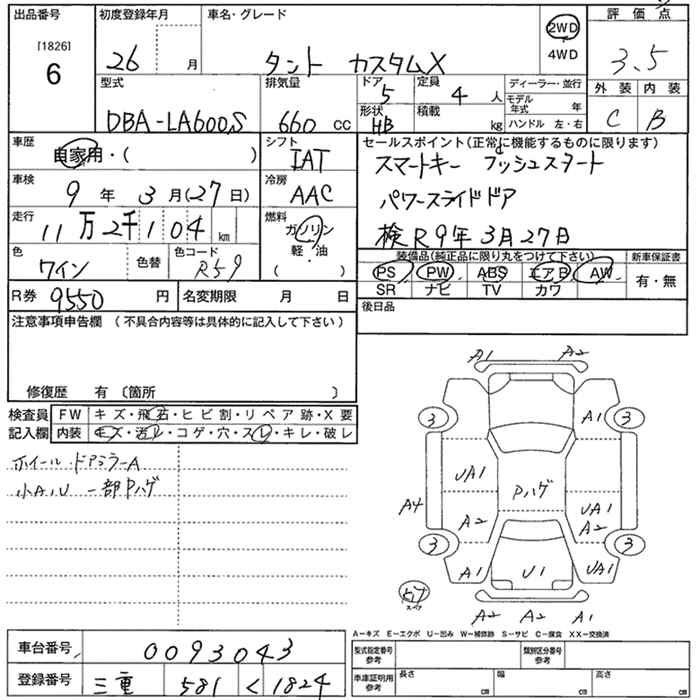 出品番号
[1826]
6
初度登録年月
26 月
車名・グレード
タント カスタムX
2WD
4WD
評価点
3.5
外装 内装
C B
型式
DBA-LA600S
排気量
660 cc
ドア
5
形状
HB
定員
4 人
積載
kg
ディーラー・並行
モデル年式 年
ハンドル 左・右
車歴
自家用・( )
シフト
IAT
車検
9 年 3 月(27日)
冷房
AAC
走行
11万2千104 km
燃料
ガソリン
軽・油
( )
色
ワイン
色替
色コード
R59
セールスポイント(正常に機能するものに限ります)
スマートキー プッシュスタート
パワースライドドア
検R9年3月27日
装備品(純正品に限り丸をつけて下さい)
PS PW ABS エアB AW
SR ナビ TV カワ
新車保証書
有・無
R券 9550 円
名変期限 月 日
後日品
注意事項申告欄(不具合内容等は具体的に記入して下さい)
修復歴 有〔箇所 〕
検査員
記入欄
FW キズ・飛石・ヒビ割・リペア跡・X要
内装 キズ・汚レ・コゲ・穴・スレ・キレ・破レ
ホイール・ドアミラーA
小A.U 一部Pハゲ
A1 A2
3 A1 3
UA1 Pハゲ
A4 A2 UA1
A2
3 3
A1 U1 UA1
スペア
A2 A2 A1
A−キズ E−エクボ U−凹み W−補修跡 S−サビ C−腐食 XX−交換済
車台番号 0093043
登録番号 三重 581 く 1824
型式指定番号
参考
類別区分番号
参考
車庫証明用
参考
長さ cm
幅 cm
高さ cm